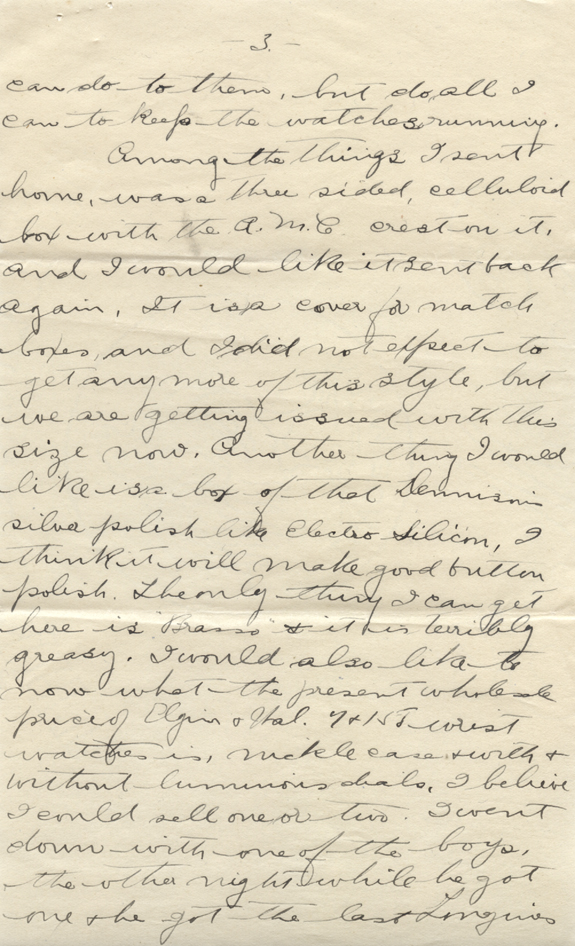 - 3. -
can do to them, but do all I
can to keep the watches running.
Among the things I sent
home, was a three sided, celluloid
box with the A.M.C. crest on it,
and I would like it sent back
again, It is a cover for match
boxes, and I did not expect to
get any more of this style, but
we are getting issued with this
size now. Another thing I would
like is a box of that Dennison's
silver polish like Electro Silicon, I
think it will make good button
polish. The only thing I can get
here is "Brasso" & it is terribly
greasy. I would also like to
now what the present wholesale
price of Elgin & Wal. 7 & 15J wrist
watches is, nickle case & with &
without luminous dials, I believe
I could sell one or two. I went
down with one of the boys,
the other night while he got
one & he got the last Longines